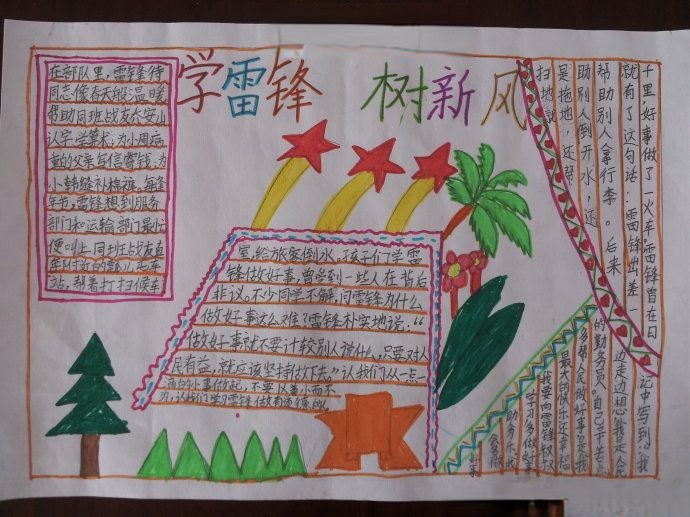 学雷锋 树新风
在部队里，雷锋待
同志像春天般温暖
帮助同班战友乔安山
认字学算术，为小周病
重的父亲写信寄钱，为
小韩缝补棉裤，每逢
年节，雷锋想到服务
部门和运输部门最忙
便叫上同班战友直
站，帮着打扫候车
室，给旅客倒水。孩子们学雷
锋做好事，曾受到一些人在背后
非议。不少同学不解，问雷锋为什么
做好事这么难？雷锋朴实地说："
做好事就不要计较别人说什么，只要对人
民有益，就应该坚持做下去。"让我们从一点
滴的小事做起，不要以善小而不
为，让我们学习雷锋做有道德的
十里，好事做了一火车，雷锋曾在日
就有了这句话：雷锋出差一
帮助别人拿行李。后来
助别人倒开水，还
是拖地，还帮
扫地就
记中写到：我
边走边想我是人民
的勤务员。自己辛苦点
多帮人民做好事是我
最大的快乐还幸福
我要向雷锋叔叔
学习多做好事